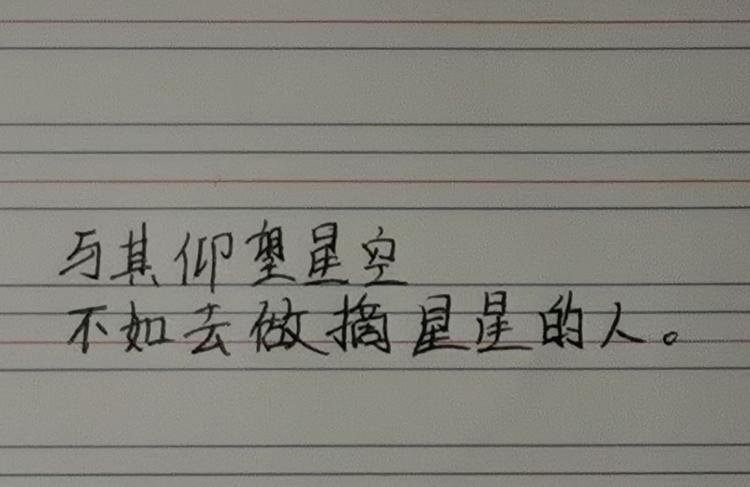 与其仰望星空
不如去做摘星星的人。